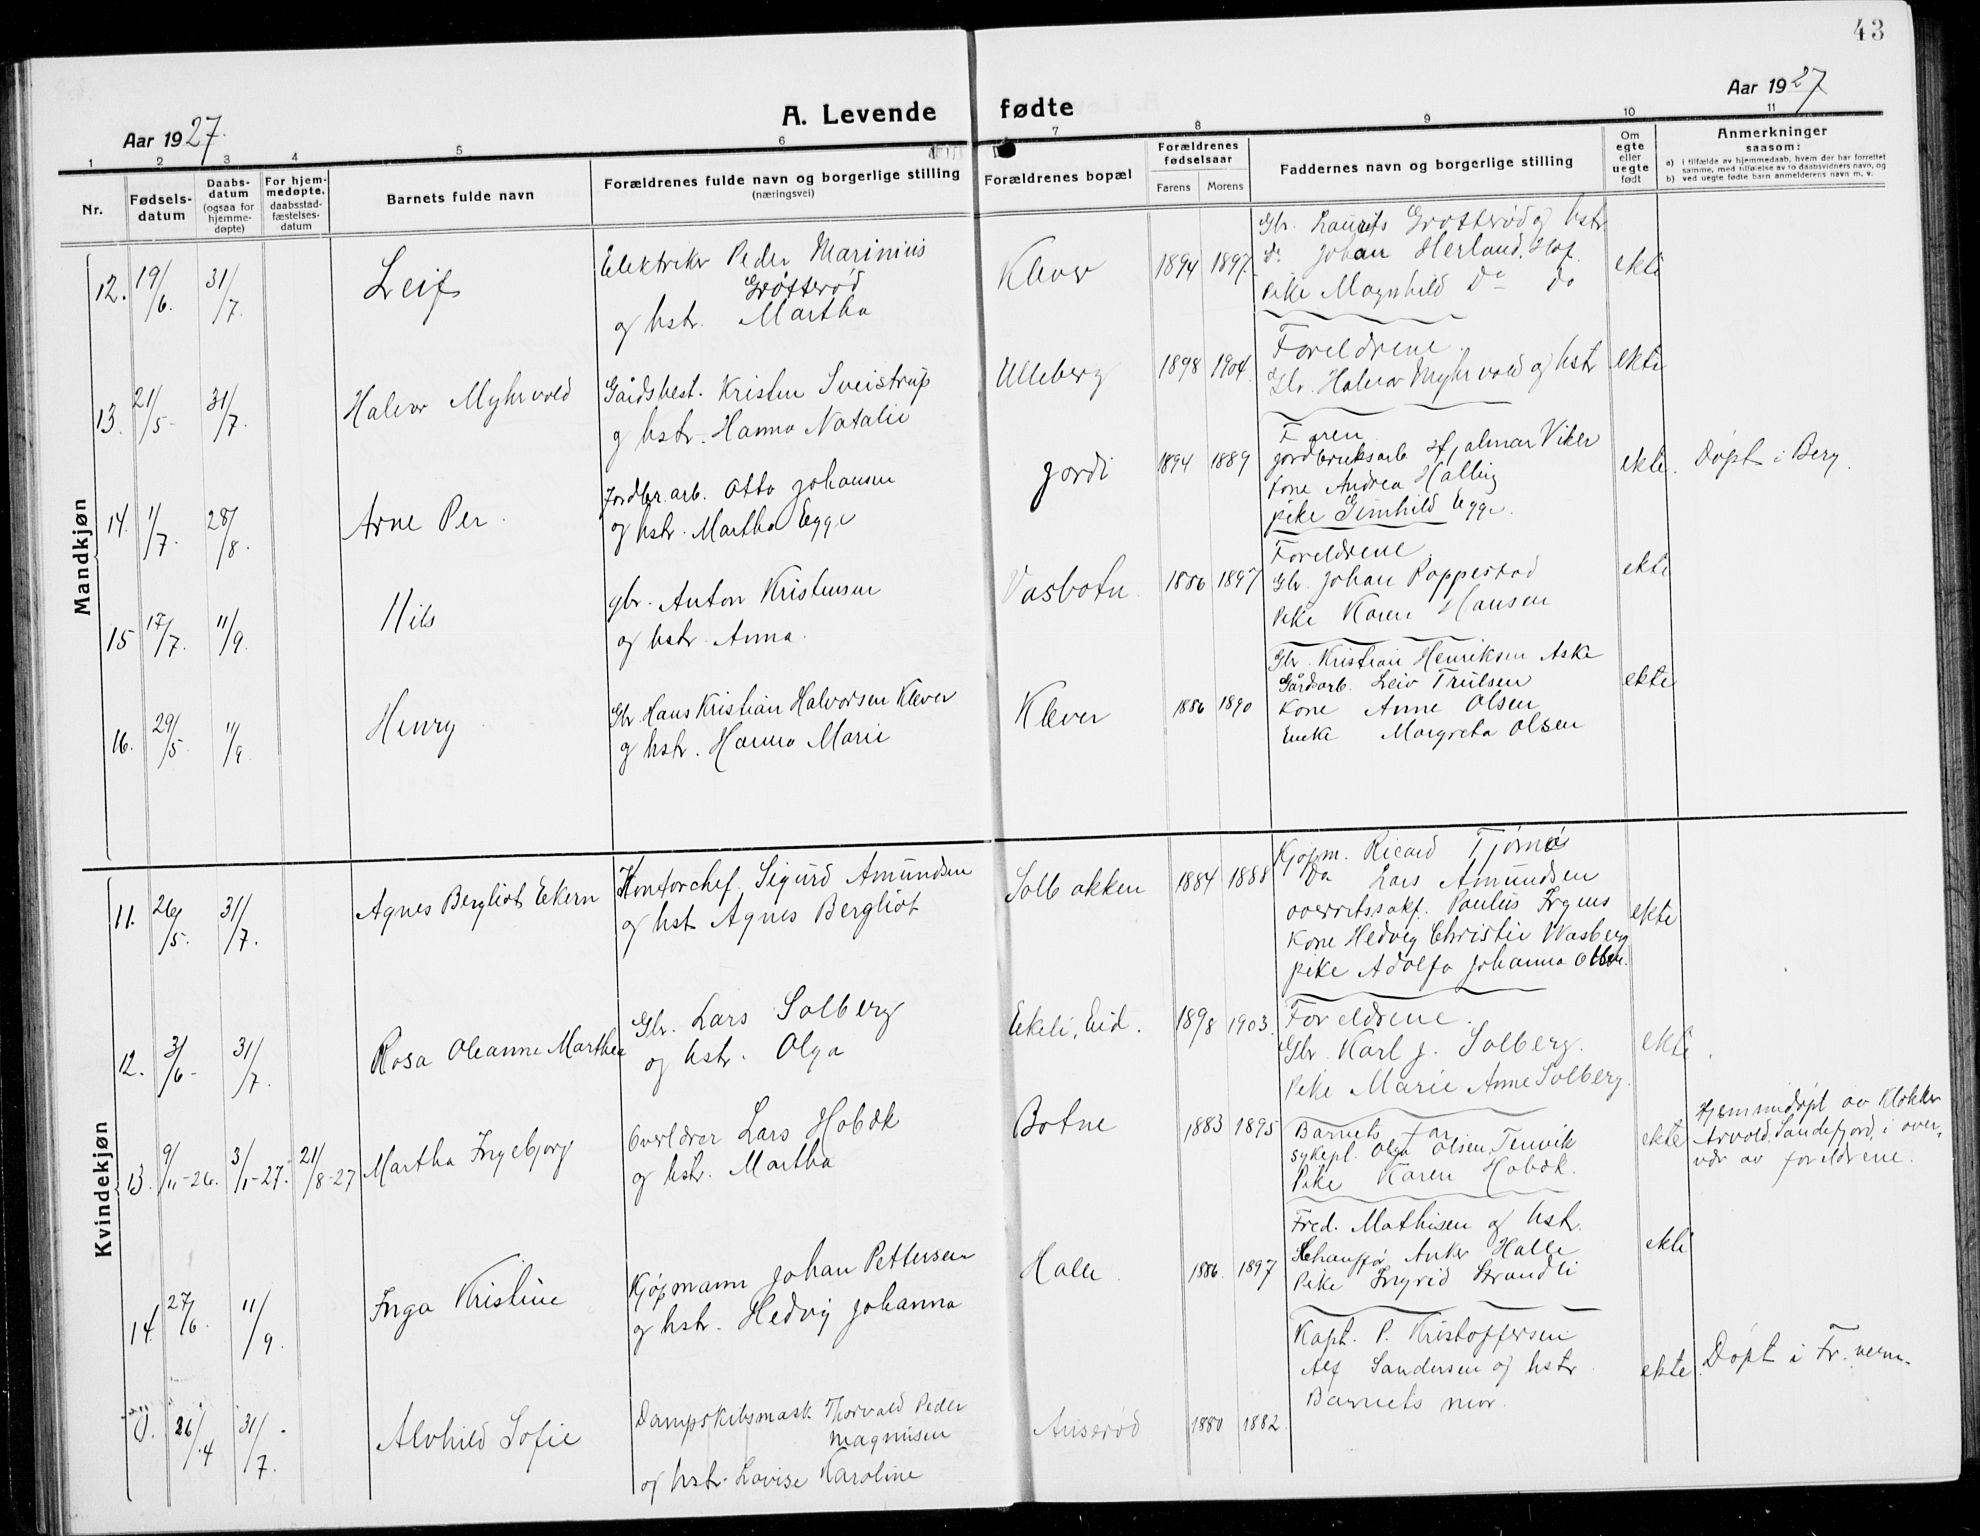 43
Aar 1927.
A. Levende fødte
Aar 1927
1 2 3 4 5 6 7 8 9 10 11
Nr.
Fødselsdatum
Daabsdatum (ogsaa for hjemmedøpte)
For hjemmedøpte, daabsstadfæstelsesdatum
Barnets fulde navn
Forældrenes fulde navn og borgerlige stilling (næringsvei)
Forældrenes bopæl
Forældrenes fødselsaar
Farens Morens
Faddernes navn og borgerlige stilling
Om egte eller uegte født
Anmerkninger saasom:
a) i tilfælde av hjemmedaab, hvem der har forrettet samme, med tilføielse av to daabsvidners navn, og
b) ved uegte fødte barn anmelderens navn m. v.
Mandkjøn
12. 19/6. 31/7. Leif
Elektriker Peder Marinius
Grøtterød
og hstr. Martha
Klever 1894 1897.
Gbr. Laurits Grøtterød og hstr
Do Johan Herland, Hof.
Pike Magnhild Do Do
ekte
13. 21/5- 31/7. Halvor Myhrvold
Gårdsbest. Kristen Sveistrup
og hstr. Hanna Natalie
Ulleberg 1898 1904.
Foreldrene.
Gbr. Halvor Myhrvold og hstr
ekte
14. 1/7. 28/8. Arne Per.
Jordbr.arb. Otto Johansen
og hstr. Martha Egge
Jordi 1894 1889
Faren
Jordbruksarb Hjalmar Viker
Kone Andrea Halling
pike Gunhild Egge.
ekte. Døpt i Berg.
15 17/7. 11/9. Nils
gbr. Anton Kristensen
og hstr. Anna.
Vasbotn 1886 1897
Foreldrene.
Gbr. Johan Roppestad
Pike Karen Hansen
ekte
16. 29/5. 11/9 Henry
Gbr Hans Kristian Halvorsen Klever
og hstr. Hanna Marie
Klever 1886 1890
Gbr. Kristian Henriksen Aske
Gårdsarb. Leiv Trulsen
Kone Anne Olsen
Enke Margreta Olsen
ekte
Kvindekjøn
11. 26/5. 31/7. Agnes Bergliot Eekern
Kontorchef Sigurd Amundsen
og hst Agnes Bergliot
Solbakken 1884 1888
Kjøpm. Ricard Tjømøe
Do Lars Amundsen
overretssakf. Paulus
Kone Hedvig Christie Wasberg
pike Adolfa Johanna
ekte
12. 3/6- 31/7. Rosa Oleanne Marthea
Gbr. Lars Solberg
og hstr. Olga
Eekeli, Eid. 1898 1903.
Foreldrene.
Gbr. Karl J. Solberg.
Pike Marie Anne Solberg.
ekte.
13. 9/11-26. 3/1-27. 21/8-27 Martha Ingebjørg
Overlærer Lars Hobæk
og hstr. Martha
Botne 1883 1895
Barnets far
sykepl. Olga Olsen Tenvik
Pike Karen Hobæk.
ekte
Hjemmedøpt av Klokker
Arvold, Sandefjord, i over-
vær av foreldrene.
14. 27/6. 11/9. Inga Kristine
Kjøpmann Johan Pettersen
og hstr. Hedvig Johanna
Halle. 1886. 1897
Fred. Mathisen og hstr.
Schauffør Anker Halle
Pike Ingrid Strandli
ekte
0. 26/4 31/7. Alvhild Sofie
Dampskibsmask Thorvald Peder
Magnusen
og hstr. Lovise Karoline
Auserød 1880 1882.
Kapt. P. Kristoffersen
Alf Sandersen og hstr.
Barnets mor.
ekte. Døpt i Fr. vern.